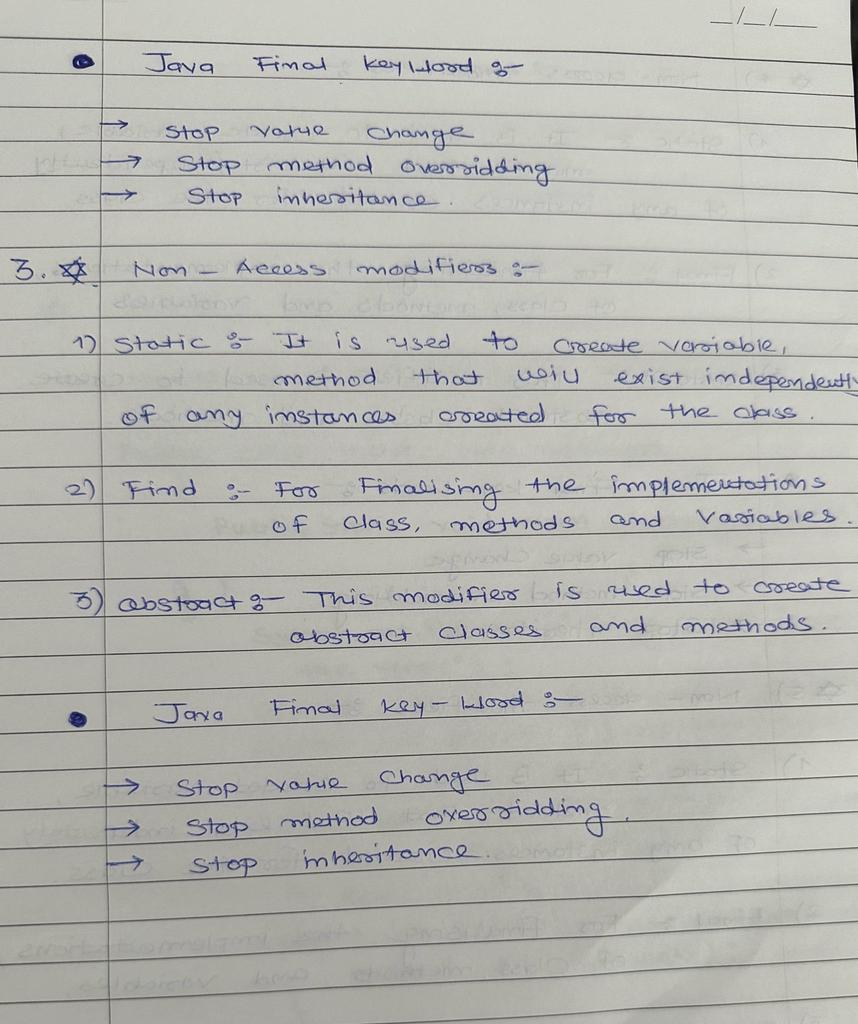 _/_/__
• Java Final keyword :-
→ Stop value change
→ Stop method overridding
→ Stop inheritance.
3. ✡ Non - Access modifiers :-
1) Static :- It is used to create variable,
method that will exist independently
of any instances created for the class.
2) Find :- For Finalising the implementations
of class, methods and variables.
3) abstract :- This modifier is used to create
abstract classes and methods.
• Java Final key-word :-
→ Stop value change
→ Stop method overridding.
→ Stop inheritance.